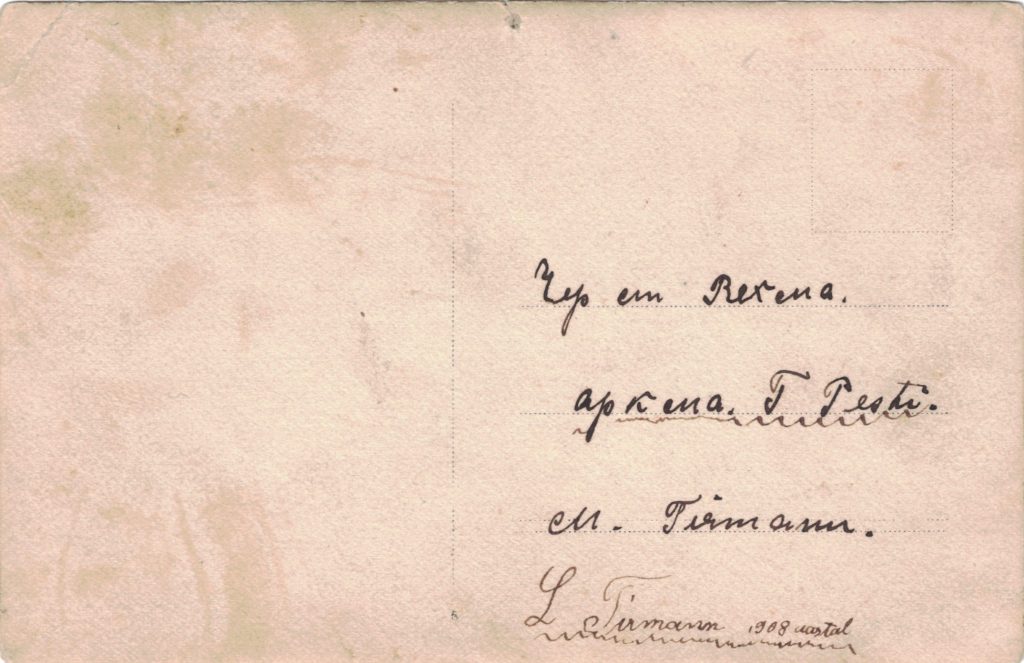 Чер ст Rexena.
аркена. Т Pesti.
М. Tirmann.
L Tirmann 1908 aastal